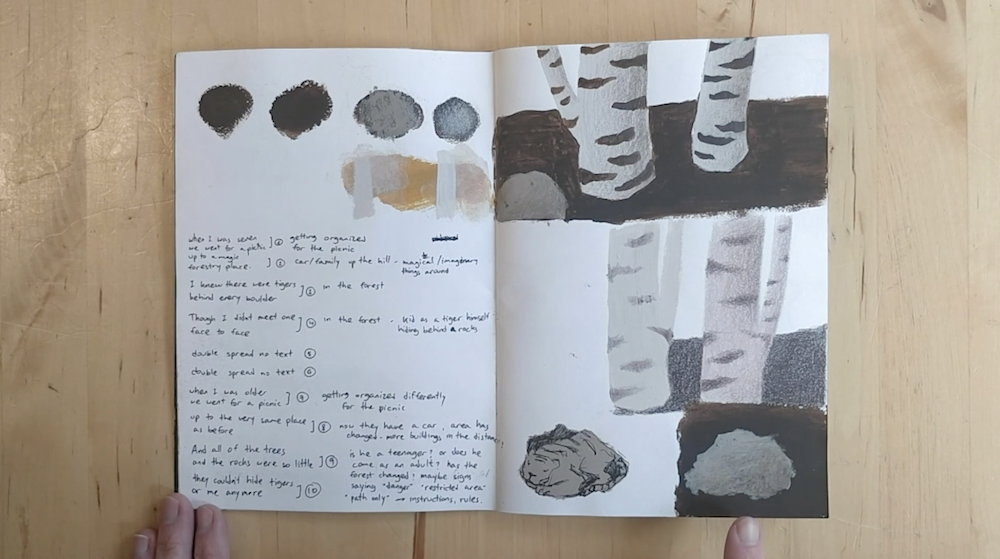 when I was seven ] ② getting organized
we went for a picnic for the picnic
up to a magic
forestry place. ] car/family up the hill - magical/imaginary
things around
I knew there were tigers ] in the forest
behind every boulder
Though I didnt meet one ] in the forest - kid as a tiger himself
face to face hiding behind rocks
double spread no text ⑤
double spread no text ⑥
when I was older ] getting organized differently
we went for a picnic for the picnic
up to the very same place ] ⑧ now they have a car, area has
as before changed - more buildings in the distance?
And all of the trees is he a teenager? or does he
and the rocks were so little ] ⑨ come as an adult? has the
forest changed? maybe signs
they couldn't hide tigers ] ⑩ saying "danger" "restricted area"
or me anymore "path only" → instructions, rules.